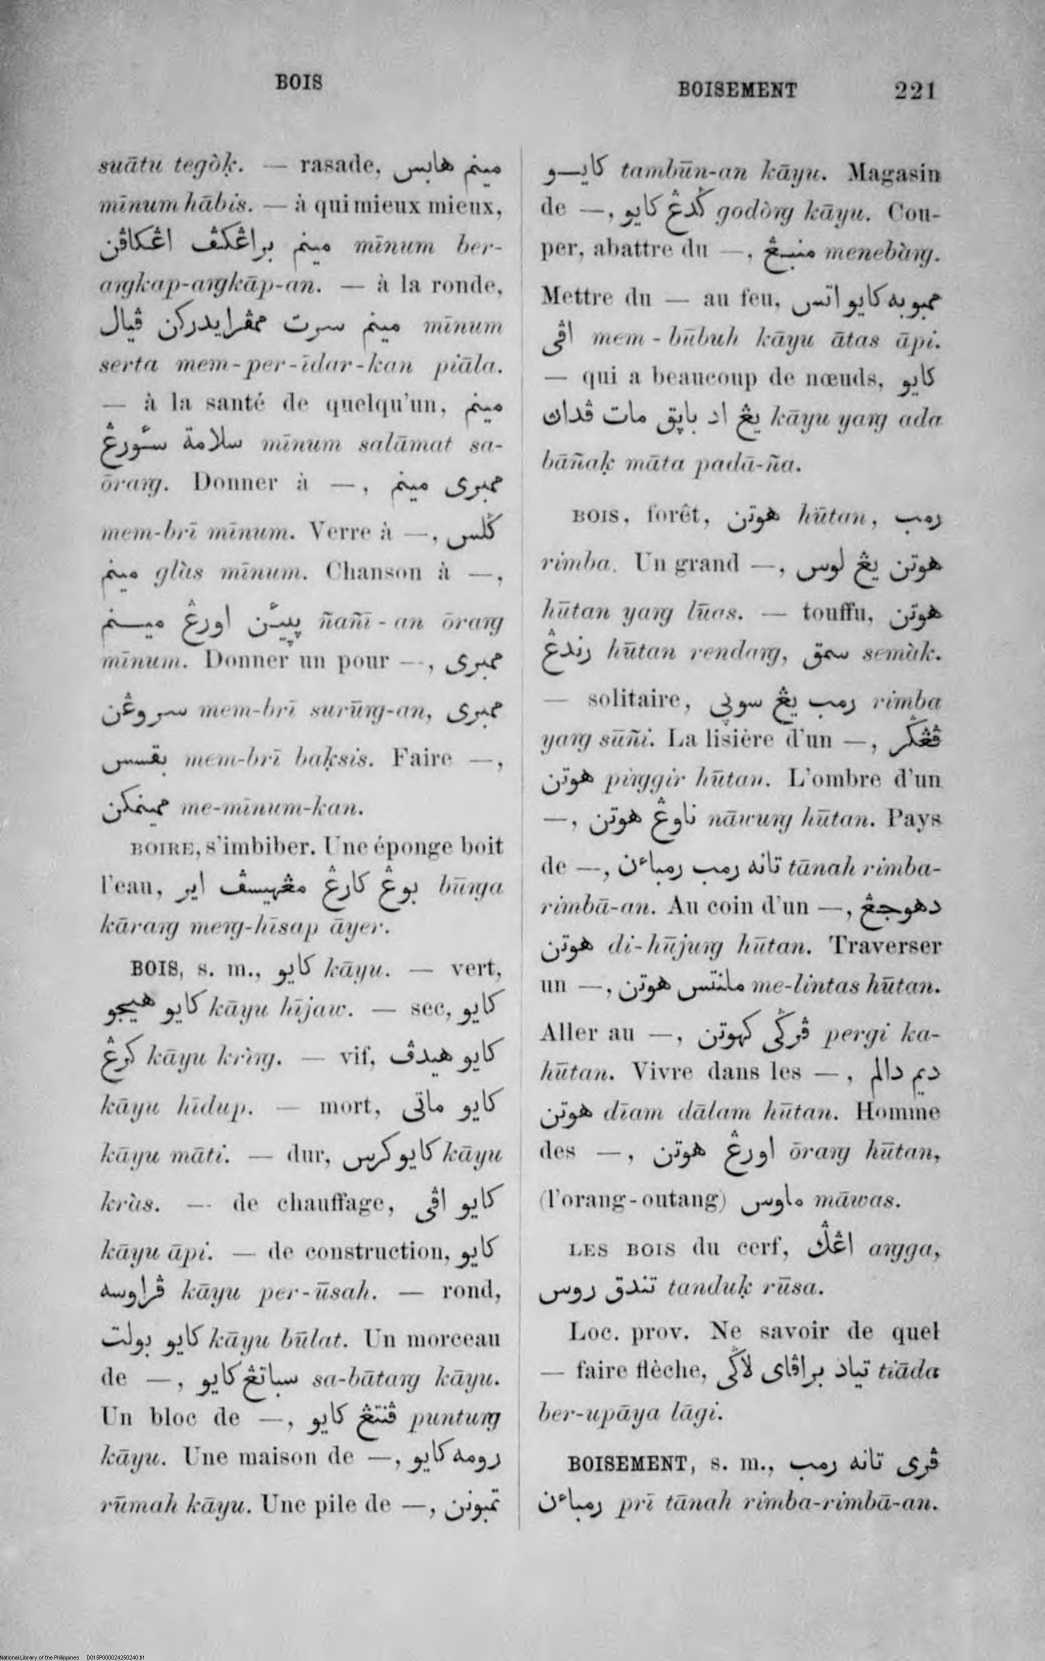 BOIS
BOISEMENT 221
suātu tegòḳ. — rasade, مينم هابس
mīnum hābis. — à qui mieux mieux,
مينم براڠكڤ اڠكاڤن mīnum ber-
aŋgkap-aŋgkāp-an. — à la ronde,
مينم سرت ممڤرايدركن ڤيال mīnum
serta mem-per-īdar-kan piāla.
— à la santé de quelqu'un, مينم
سلامة سٔورڠ mīnum salāmat sa-
ōraŋg. Donner à —, ممبري مينم
mem-brī mīnum. Verre à —, ݢلس
مينم glàs mīnum. Chanson à —,
ڽيڽين اورڠ مينم ñañī-an ōraŋg
mīnum. Donner un pour —, ممبري
سروڠن mem-brī surūŋg-an, ممبري
بقسس mem-brī baḳsis. Faire —,
مميمنكن me-mīnum-kan.
BOIRE, s'imbiber. Une éponge boit
l'eau, بوڠ كارڠ مڠهيسڤ اير būŋga
kāraŋg meŋg-hīsap āyer.
BOIS, s. m., كايو kāyu. — vert,
كايو هيجو kāyu hījaw. — sec, كايو
كرڠ kāyu krìŋg. — vif, كايو هيدڤ
kāyu hīdup. — mort, كايو ماتي
kāyu māti. — dur, كايو كرس kāyu
kràs. — de chauffage, كايو اڤي
kāyu āpi. — de construction, كايو
ڤراوسه kāyu per-ūsah. — rond,
كايو بولت kāyu būlat. Un morceau
de —, سباتڠ كايو sa-bātaŋg kāyu.
Un bloc de —, ڤنتڠ كايو puntuŋg
kāyu. Une maison de —, رومه كايو
rūmah kāyu. Une pile de —, تمبونن
كايو tambūn-an kāyu. Magasin
de —, ݢدڠ كايو godòŋg kāyu. Cou-
per, abattre du —, منبڠ menebàŋg.
Mettre du — au feu, ممبوبه كايو اتس
اڤي mem-būbuh kāyu ātas āpi.
— qui a beaucoup de nœuds, كايو
يڠ اد باڽق مات ڤداڽ kāyu yaŋg ada
bāñaḳ māta padā-ña.
BOIS, forêt, هوتن hūtan, رمب
rimba. Un grand —, هوتن يڠ لوس
hūtan yaŋg lūas. — touffu, هوتن
رندڠ hūtan rendaŋg, سمق semàk.
— solitaire, رمب يڠ سوڽي rimba
yaŋg sūñi. La lisière d'un —, ڤڠݢر
هوتن piŋggir hūtan. L'ombre d'un
—, ناوڠ هوتن nāwuŋg hūtan. Pays
de —, تانه رمب رمباءن tānah rimba-
rimbā-an. Au coin d'un —, دهوجڠ
هوتن di-hūjuŋg hūtan. Traverser
un —, ملنتس هوتن me-lintas hūtan.
Aller au —, ڤرݢي كهوتن pergi ka-
hūtan. Vivre dans les —, ديم دالم
هوتن dīam dālam hūtan. Homme
des —, اورڠ هوتن ōraŋg hūtan,
(l'orang-outang) ماوس māwas.
LES BOIS du cerf, اڠݢ aŋgga,
تندق روس tanduḳ rūsa.
Loc. prov. Ne savoir de quel
— faire flèche, تياد براڤاي لاݢي tiāda
ber-upāya lāgi.
BOISEMENT, s. m., ڤري تانه رمب
رمباءن prī tānah rimba-rimbā-an.
National Library of the Philippines